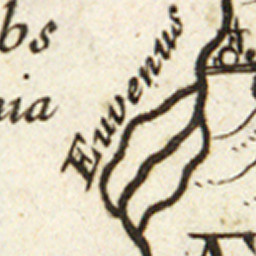 bs
nia
Euvenus